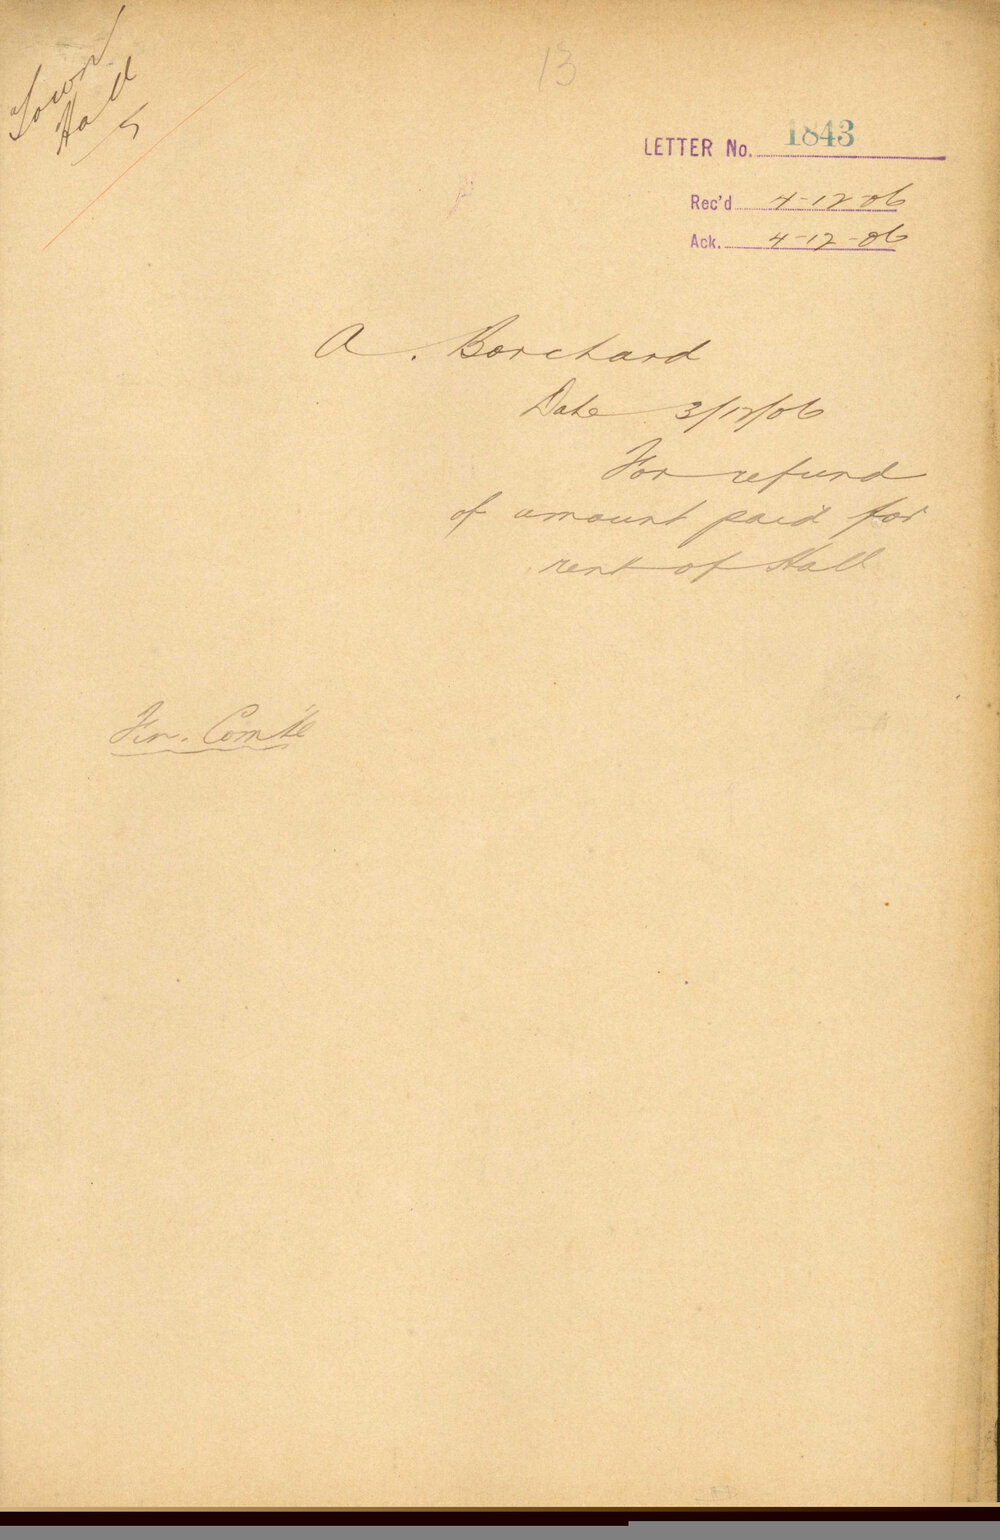 Town
Hall
5
13
LETTER No. 1843
Rec'd 4-12-06
Ack. 4-12-06
A. Borchard
Date 3/12/06
For refund
of amount paid for
rent of Hall
Fin. Comte